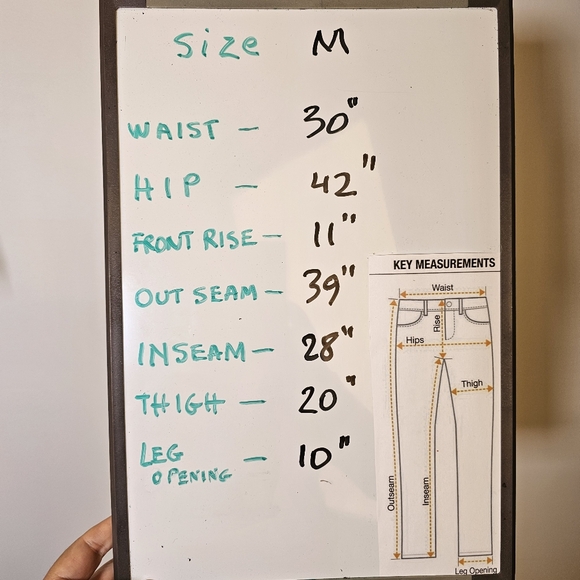 Size M
WAIST – 30"
HIP – 42"
FRONT RISE – 11"
OUT SEAM – 39"
INSEAM – 28"
THIGH – 20"
LEG OPENING – 10"
KEY MEASUREMENTS
Waist
Rise
Hips
Thigh
Outseam
Inseam
Leg Opening